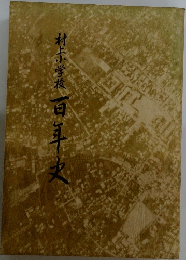 村上小学校
百年史